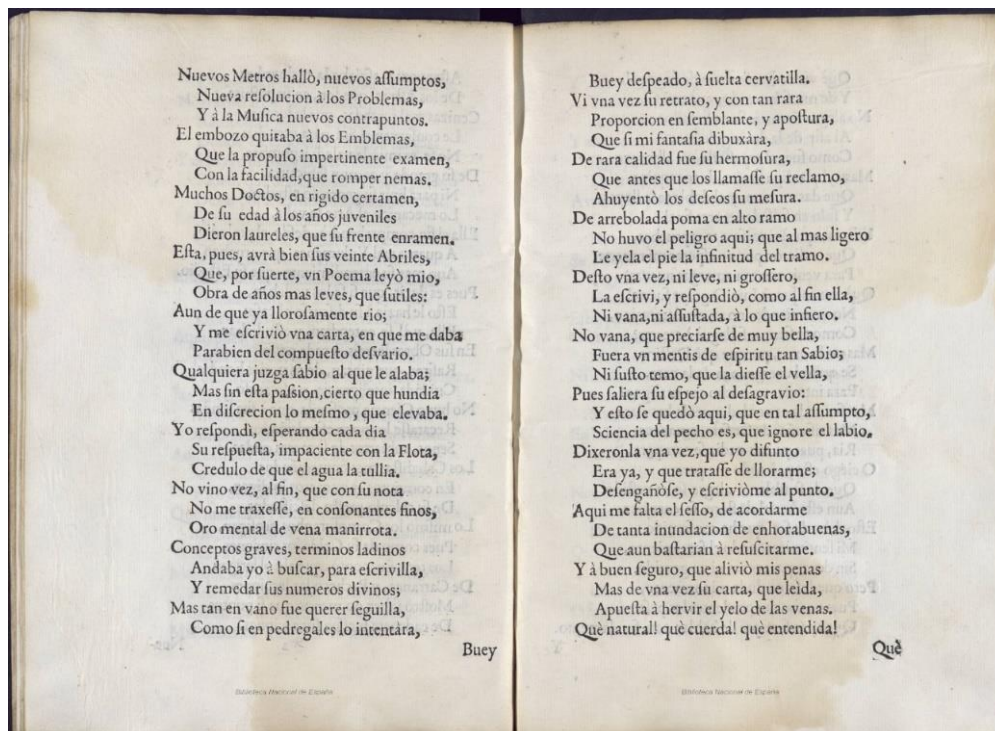 Nuevos Metros hallò, nuevos aſſumptos,
Nueva reſolucion à los Problemas,
Y à la Muſica nuevos contrapuntos.
El embozo quitaba à los Emblemas,
Que la propuſo impertinente examen,
Con la facilidad,que romper nemas.
Muchos Doctos, en rigido certamen,
De ſu edad à los años juveniles
Dieron laureles, que ſu frente enramen.
Eſta, pues, avrà bien ſus veinte Abriles,
Que, por ſuerte, vn Poema leyò mio,
Obra de años mas leves, que ſutiles:
Aun de que ya lloroſamente rio;
Y me eſcriviò vna carta, en que me daba
Parabien del compueſto deſvario.
Qualquiera juzga ſabio al que le alaba;
Mas ſin eſta paſsion,cierto que hundia
En diſcrecion lo meſmo , que elevaba.
Yo reſpondì, eſperando cada dia
Su reſpueſta, impaciente con la Flota,
Credulo de que el agua la tullia.
No vino vez, al fin, que con ſu nota
No me traxeſſe, en conſonantes finos,
Oro mental de vena manirrota.
Conceptos graves, terminos ladinos
Andaba yo à buſcar, para eſcrivilla,
Y remedar ſus numeros divinos;
Mas tan en vano fue querer ſeguilla,
Como ſi en pedregales lo intentàra,
Buey
Buey deſpeado, à ſuelta cervatilla.
Vi vna vez ſu retrato, y con tan rara
Proporcion en ſemblante, y apoſtura,
Que ſi mi fantaſia dibuxàra,
De rara calidad fue ſu hermoſura,
Que antes que los llamaſſe ſu reclamo,
Ahuyentò los deſeos ſu meſura.
De arrebolada poma en alto ramo
No huvo el peligro aqui; que al mas ligero
Le yela el pie la infinitud del tramo.
Deſto vna vez, ni leve, ni groſſero,
La eſcrivi, y reſpondiò, como al fin ella,
Ni vana,ni aſſuſtada, à lo que infiero.
No vana, que preciarſe de muy bella,
Fuera vn mentis de eſpiritu tan Sabio;
Ni ſuſto temo, que la dieſſe el vella,
Pues ſaliera ſu eſpejo al deſagravio:
Y eſto ſe quedò aqui, que en tal aſſumpto,
Sciencia del pecho es, que ignore el labio.
Dixeronla vna vez,que yo difunto
Era ya, y que trataſſe de llorarme;
Deſengañòſe, y eſcriviòme al punto.
Aqui me falta el ſeſſo, de acordarme
De tanta inundacion de enhorabuenas,
Que aun baſtarian à reſuſcitarme.
Y à buen ſeguro, que aliviò mis penas
Mas de vna vez ſu carta, que leìda,
Apueſta à hervir el yelo de las venas.
Què natural! què cuerda! què entendida!
Què
Biblioteca Nacional de España
Biblioteca Nacional de España